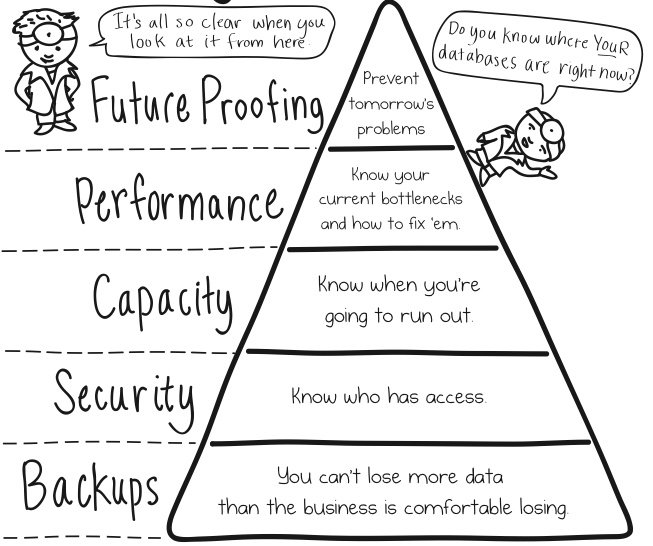 It's all so clear when you
look at it from here.
Do you know where YOUR
databases are right now?
Future Proofing
Prevent
tomorrow's
problems
Performance
Know your
current bottlenecks
and how to fix 'em.
Capacity
Know when you're
going to run out.
Security
Know who has access.
Backups
You can't lose more data
than the business is comfortable losing.